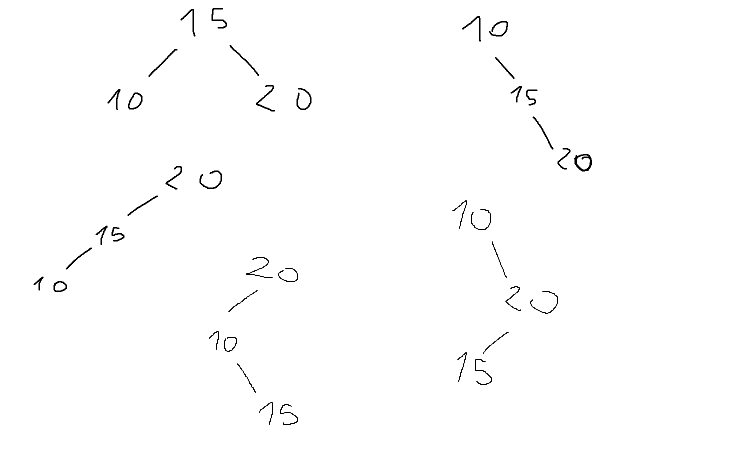 15
10 20
10
15
20
20
15
10
20
10
15
10
20
15